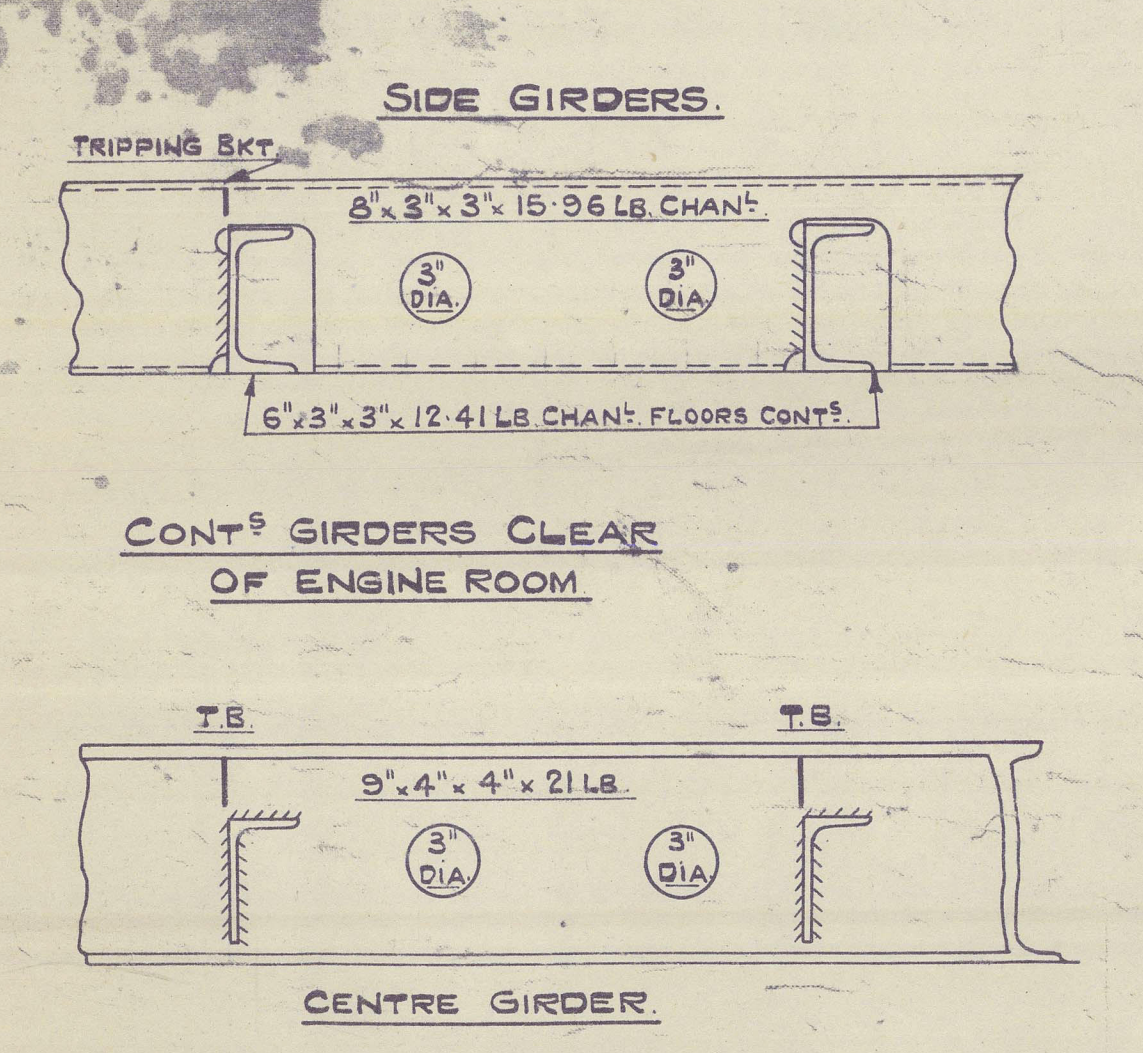 SIDE GIRDERS.
TRIPPING BKT.
8"x 3"x 3"x 15·96 LB. CHANL.
3"
DIA.
3"
DIA.
6"x 3"x 3"x 12·41 LB. CHANL. FLOORS CONTS.
CONTS GIRDERS CLEAR
OF ENGINE ROOM
T.B.
T.B.
9"x 4"x 4"x 21 LB.
3"
DIA.
3"
DIA.
CENTRE GIRDER.